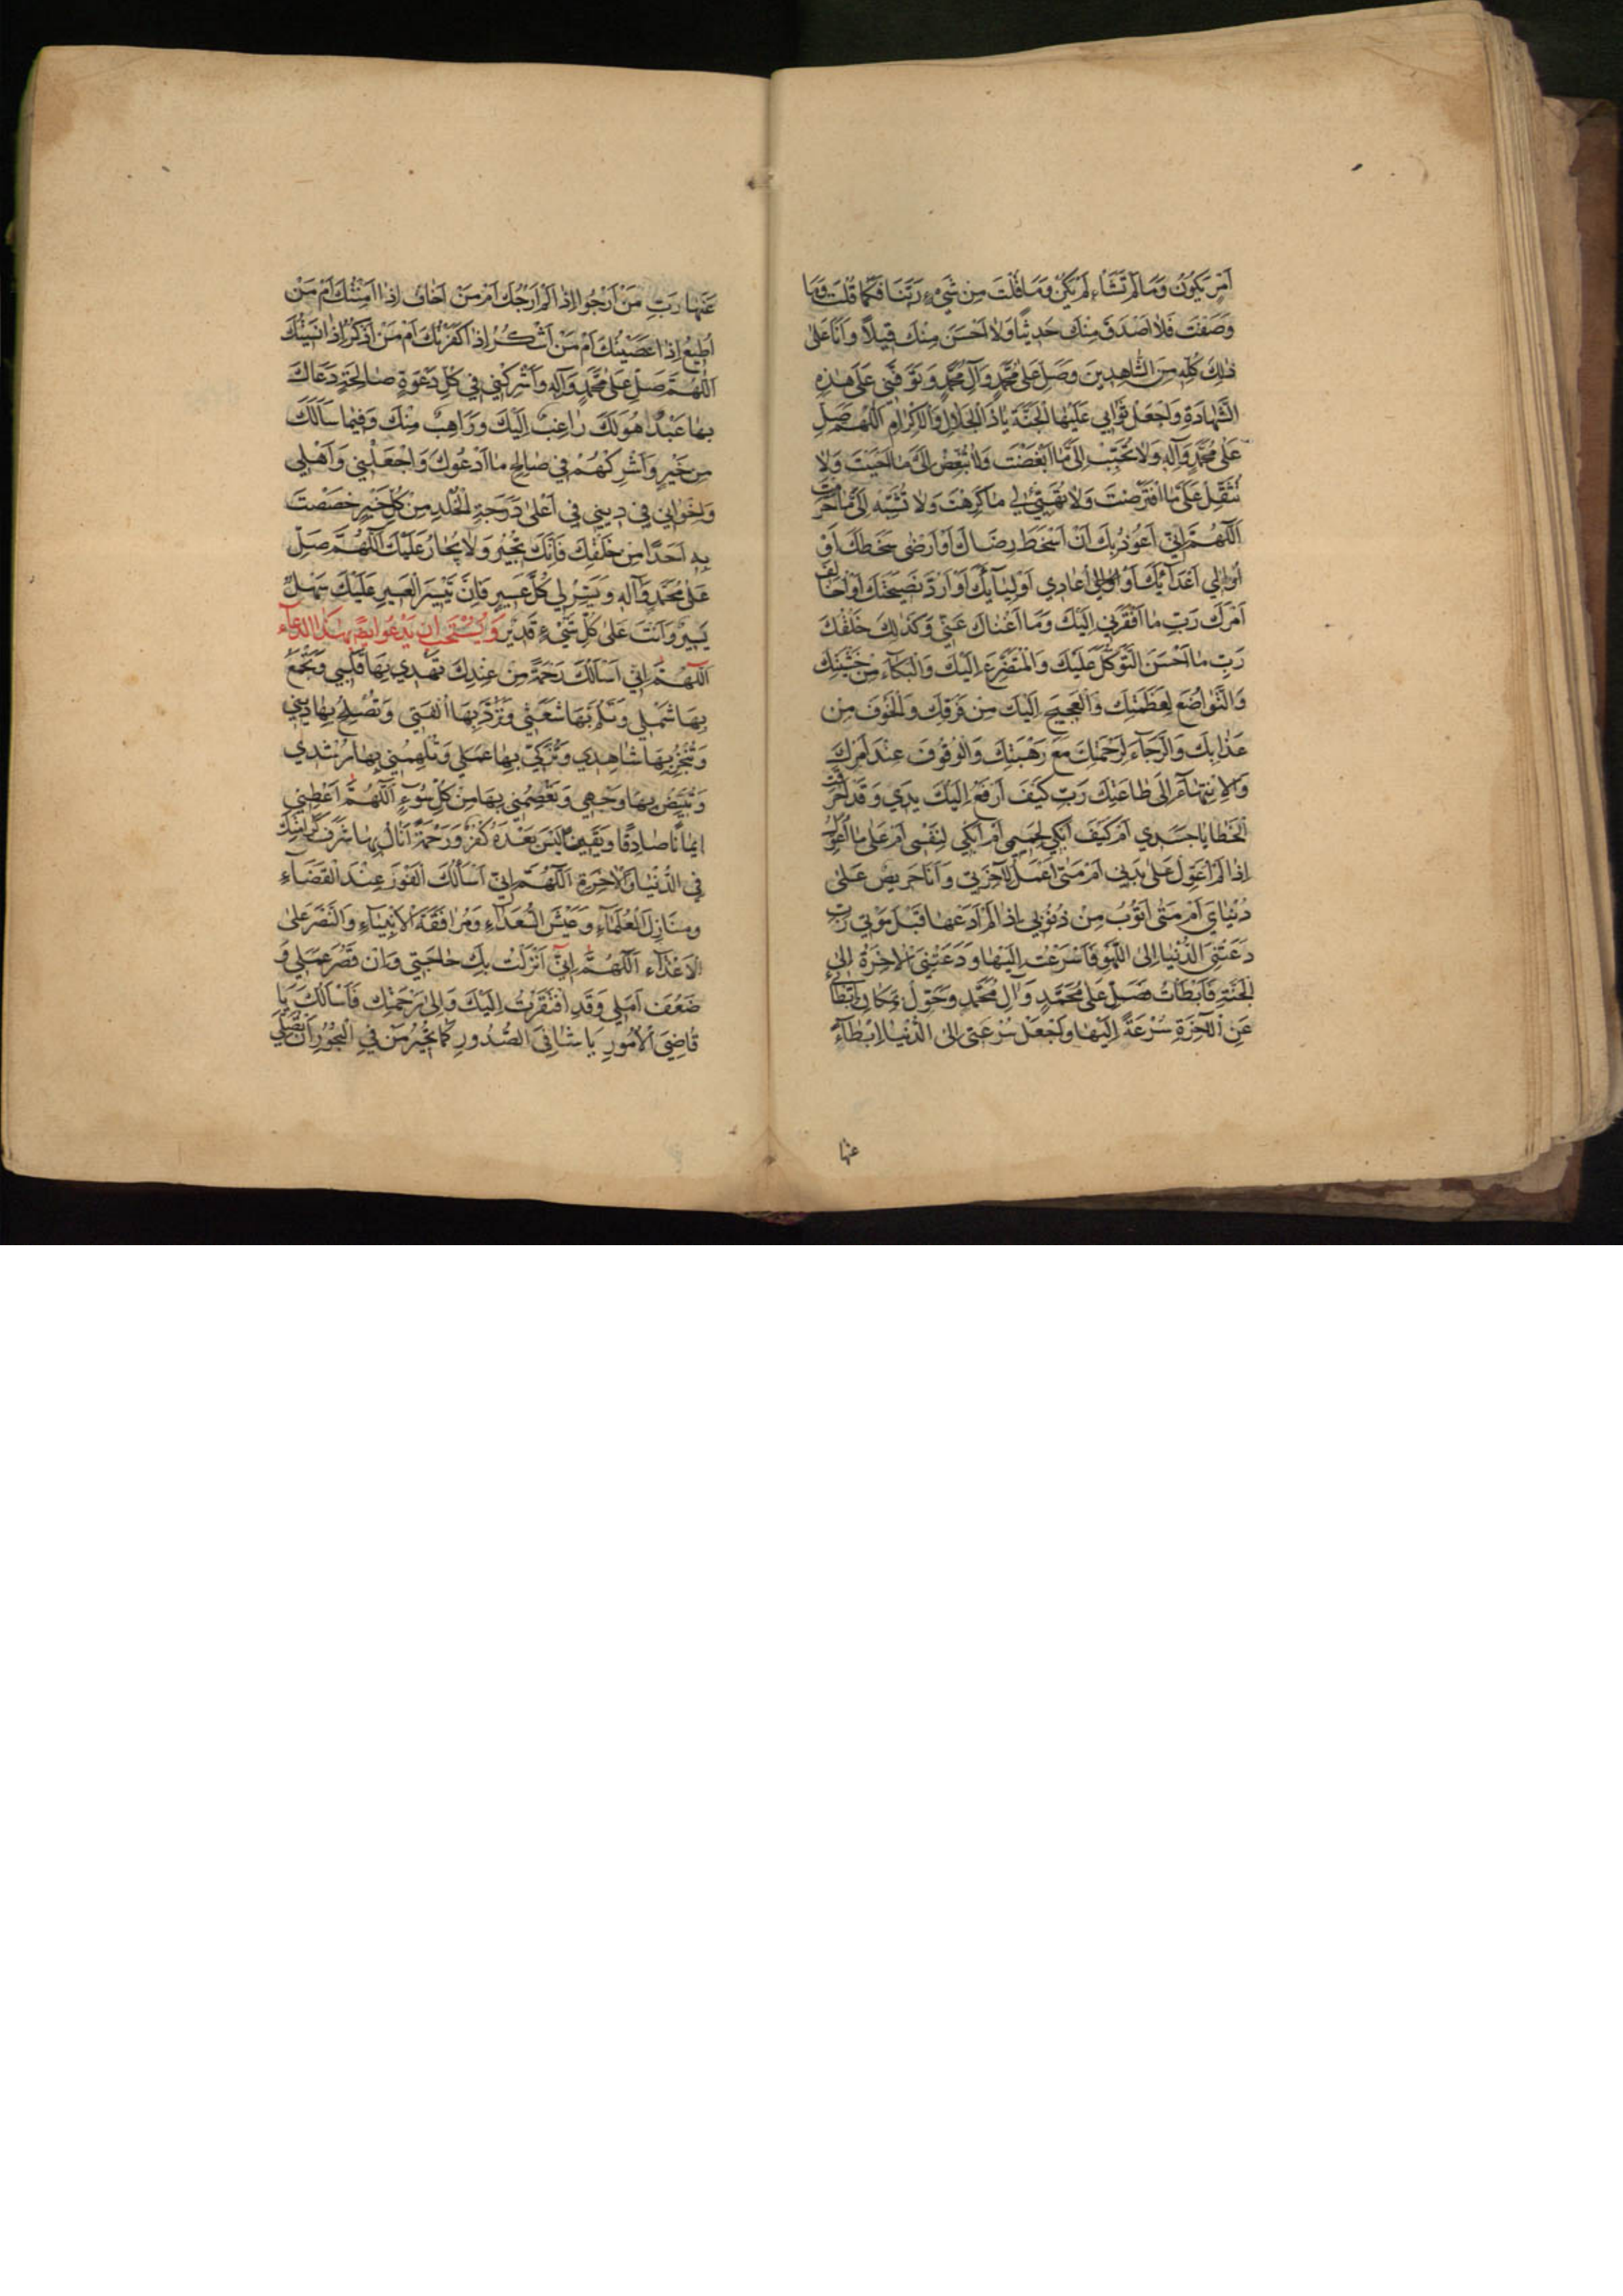 اَمْرٍ يَكُونُ وَمَا لَمْ تَشَاءْ لَمْ يَكُنْ وَمَا قُلْتَ مِنْ شَيْءٍ رَبَّنَا فَكَمَا قُلْتَ وَمَا
وَصَفْتَ فَلَا اَصْدَقَ مِنْكَ حَدِيثًا وَلَا اَحْسَنَ مِنْكَ قِيلًا وَاَنَا عَلَى
ذٰلِكَ كُلِّهِ مِنَ الشَّاهِدِينَ وَصَلِّ عَلَى مُحَمَّدٍ وَآلِ مُحَمَّدٍ وَتَوَفَّنِي عَلَى هٰذِهِ
الشَّهَادَةِ وَاجْعَلْ ثَوَابِي عَلَيْهَا الْجَنَّةَ يَا ذَا الْجَلَالِ وَالْاِكْرَامِ اَللّٰهُمَّ صَلِّ
عَلَى مُحَمَّدٍ وَآلِهِ وَلَا تُحَبِّبْ اِلَيَّ مَا اَبْغَضْتَ وَلَا تُبَغِّضْ اِلَيَّ مَا اَحْبَبْتَ وَلَا
تُثَقِّلْ عَلَيَّ مَا افْتَرَضْتَ وَلَا تُهَيِّئْ لِي مَا كَرِهْتَ وَلَا تُشَبِّهْ اِلَيَّ مَا حَرَّمْتَ
اَللّٰهُمَّ اِنِّي اَعُوذُ بِكَ اَنْ اَسْخَطَ رِضَاكَ اَوْ اَرْضَى سَخَطَكَ اَوْ
اُوَالِي اَعْدَائَكَ اَوْ اُعَادِي اَوْلِيَائَكَ اَوْ اَرُدَّ نَصِيحَتَكَ اَوْ اُخَالِفَ
اَمْرَكَ رَبِّ مَا اَفْقَرَنِي اِلَيْكَ وَمَا اَغْنَاكَ عَنِّي وَكَذٰلِكَ خَلْقُكَ
رَبِّ مَا اَحْسَنَ التَّوَكُّلَ عَلَيْكَ وَالتَّضَرُّعَ اِلَيْكَ وَالْبُكَاءَ مِنْ خَشْيَتِكَ
وَالتَّوَاضُعَ لِعَظَمَتِكَ وَالْعَجِيجَ اِلَيْكَ مِنْ فَرَقِكَ وَالْخَوْفَ مِنْ
عَذَابِكَ وَالرَّجَاءَ لِرَحْمَتِكَ مَعَ رَهْبَتِكَ وَالْوُقُوفَ عِنْدَ اَمْرِكَ
وَالْاِنْتِهَاءَ اِلَى طَاعَتِكَ رَبِّ كَيْفَ اَرْفَعُ اِلَيْكَ يَدِي وَقَدْ اَحْرَقَتْ
الْخَطَايَا جَسَدِي اَمْ كَيْفَ اَبْكِي لِحَمِيمِي اَمْ اَبْكِي لِنَفْسِي اَمْ عَلَى مَا اُعَوِّلُ
اِذَا لَمْ اُعَوِّلْ عَلَى بَدَنِي اَمْ مَتَى اَعْمَلُ لِآخِرَتِي وَاَنَا حَرِيصٌ عَلَى
دُنْيَايَ اَمْ مَتَى اَتُوبُ مِنْ ذُنُوبِي اِذَا لَمْ اَدَعْهَا قَبْلَ مَوْتِي رَبِّ
دَعَتْنِيَ الدُّنْيَا اِلَى اللَّهْوِ فَاَسْرَعْتُ اِلَيْهَا وَدَعَتْنِي الْآخِرَةُ اِلَى
الْجَنَّةِ فَاَبْطَأْتُ فَصَلِّ عَلَى مُحَمَّدٍ وَآلِ مُحَمَّدٍ وَحَوِّلْ مَكَانَ اِبْطَائِي
عَنِ الْآخِرَةِ سُرْعَةً اِلَيْهَا وَاجْعَلْ سُرْعَتِي اِلَى الدُّنْيَا اِبْطَاءً
عنها
عَنْهَا رَبِّ مَنْ اَرْجُوا اِذَا لَمْ اَرْجُكَ اَمْ مَنْ اَخَافُ اِذَا اَمِنْتُكَ اَمْ مَنْ
اُطِيعُ اِذَا عَصَيْتُكَ اَمْ مَنْ اَشْكُرُ اِذَا كَفَرْتُكَ اَمْ مَنْ اَذْكُرُ اِذَا نَسِيتُكَ
اَللّٰهُمَّ صَلِّ عَلَى مُحَمَّدٍ وَآلِهِ وَاَشْرِكْنِي فِي كُلِّ دَعْوَةٍ صَالِحَةٍ دَعَاكَ
بِهَا عَبْدٌ هُوَ لَكَ رَاغِبٌ اِلَيْكَ وَرَاهِبٌ مِنْكَ وَفِيمَا سَأَلَكَ
مِنْ خَيْرٍ وَاَشْرِكْهُمْ فِي صَالِحِ مَا اَدْعُوكَ وَاجْعَلْنِي وَاَهْلِي
وَاِخْوَانِي فِي دِينِي فِي اَعْلَى دَرَجَةِ الْخُلْدِ مِنْ كُلِّ خَيْرٍ خَصَصْتَ
بِهِ اَحَدًا مِنْ خَلْقِكَ فَاِنَّكَ تُجِيرُ وَلَا يُجَارُ عَلَيْكَ اَللّٰهُمَّ صَلِّ
عَلَى مُحَمَّدٍ وَآلِهِ وَيَسِّرْ لِي كُلَّ عَسِيرٍ فَاِنَّ تَيْسِيرَ الْعَسِيرِ عَلَيْكَ سَهْلٌ
يَسِيرٌ وَاَنْتَ عَلَى كُلِّ شَيْءٍ قَدِيرٌ وَيُسْتَحَبُّ اَنْ يَدْعُوَ اَيْضًا بِهٰذَا الدُّعَاءِ
اَللّٰهُمَّ اِنِّي اَسْأَلُكَ رَحْمَةً مِنْ عِنْدِكَ تَهْدِي بِهَا قَلْبِي وَتَجْمَعُ
بِهَا شَمْلِي وَتَلُمُّ بِهَا شَعَثِي وَتَرُدُّ بِهَا اُلْفَتِي وَتُصْلِحُ بِهَا دِينِي
بِهَا شَاهِدِي وَتُزَكِّي بِهَا عَمَلِي وَتُلْهِمُنِي بِهَا رُشْدِي
وَتُبَيِّضُ بِهَا وَجْهِي وَتَعْصِمُنِي بِهَا مِنْ كُلِّ سُوءٍ اَللّٰهُمَّ اَعْطِنِي
اِيمَانًا صَادِقًا وَيَقِينًا لَيْسَ بَعْدَهُ كُفْرٌ وَرَحْمَةً اَنَالُ بِهَا شَرَفَ كَرَامَتِكَ
فِي الدُّنْيَا وَالْآخِرَةِ اَللّٰهُمَّ اِنِّي اَسْأَلُكَ الْفَوْزَ عِنْدَ الْقَضَاءِ
وَمَنَازِلَ الْعُلَمَاءِ وَعَيْشَ السُّعَدَاءِ وَمُرَافَقَةَ الْاَنْبِيَاءِ وَالنَّصْرَ عَلَى
الْاَعْدَاءِ اَللّٰهُمَّ اِنِّي اَنْزَلْتُ بِكَ حَاجَتِي وَاِنْ قَصُرَ عَمَلِي وَ
ضَعُفَ اَمَلِي وَقَدِ افْتَقَرْتُ اِلَيْكَ وَاِلَى رَحْمَتِكَ فَاَسْأَلُكَ يَا
قَاضِيَ الْاُمُورِ يَا شَافِيَ الصُّدُورِ كَمَا تُجِيرُ مَنْ فِي الْبُحُورِ اَنْ تُصَلِّيَ